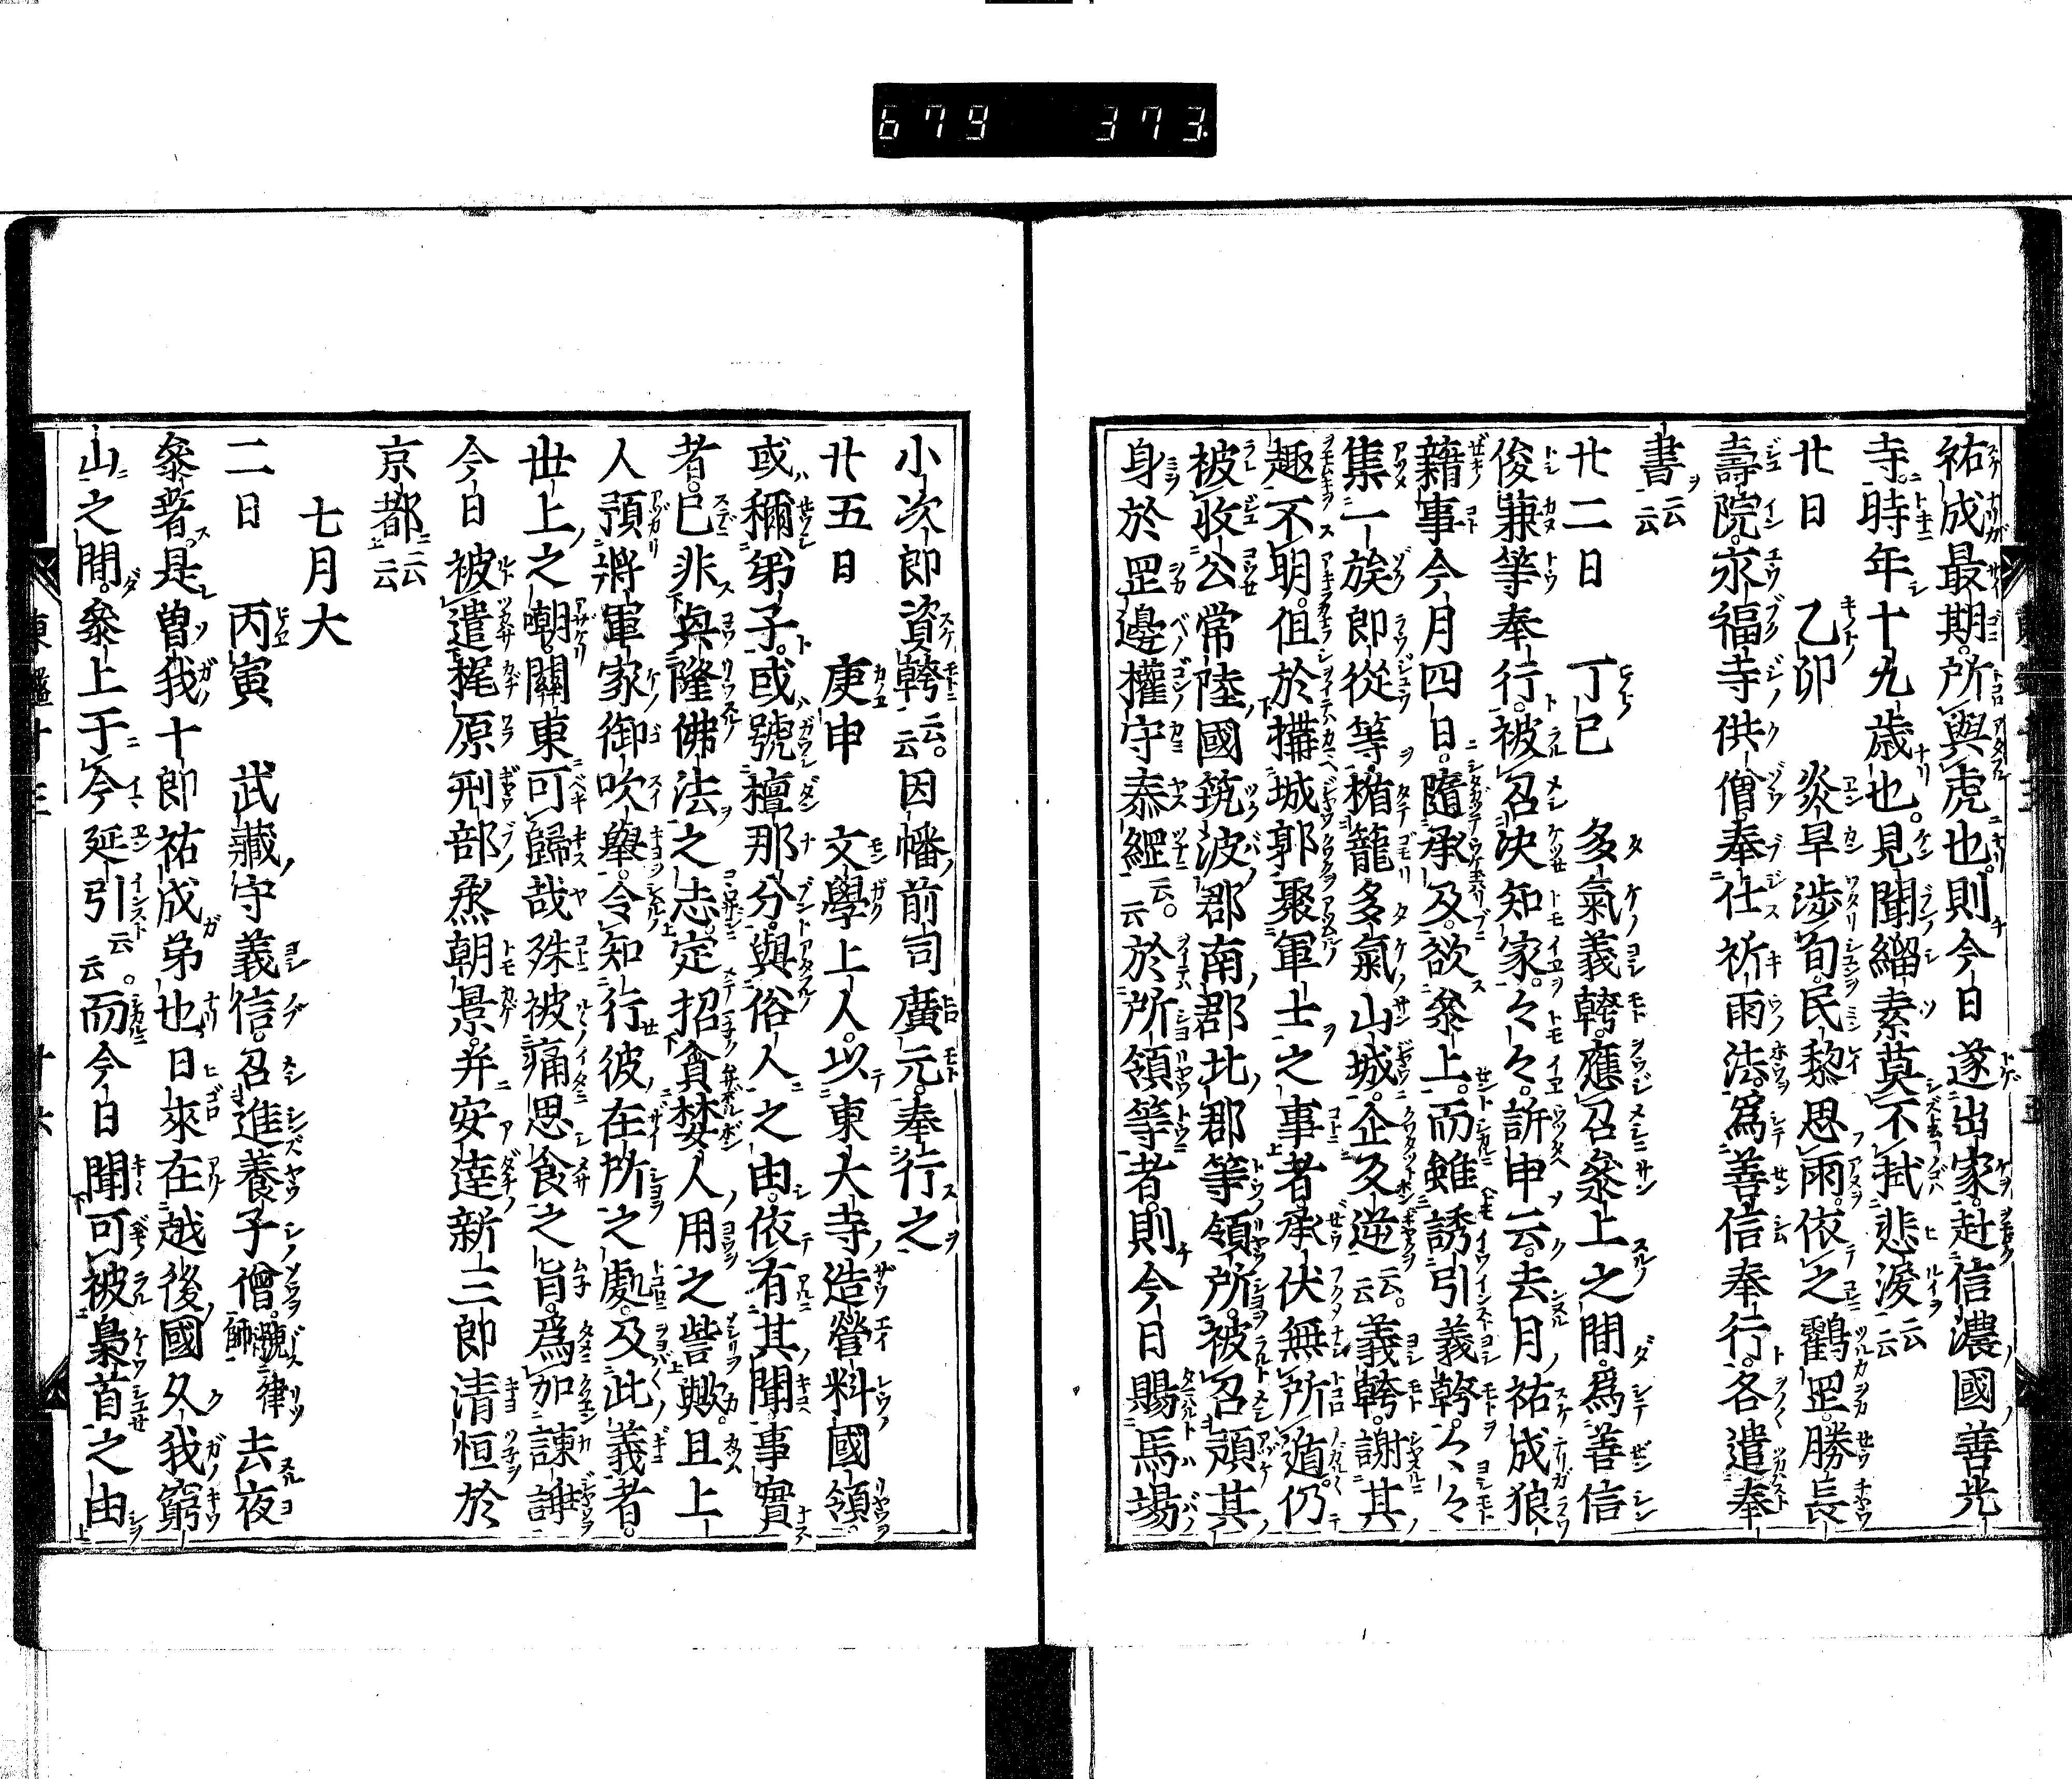 679 373
祐成最期所與虎也則今日遂出家赴信濃國善光
寺時年十九歳也見聞緇素莫不拭悲涙云云
廿日 乙卯 炎旱渉旬民黎思雨依之鸖罡勝長
壽院永福寺供僧奉仕祈雨法爲善信奉行各遣奉
書云云
廿二日 丁巳 多氣義幹應召參上之間爲善信
俊兼等奉行被召决知家々々訴申云去月祐成狼
藉事今月四日隨承及欲參上而雖誘引義幹々々
集一族郎從等楯籠多氣山城企反逆云云義幹謝其
趣不明但於搆城郭聚軍士之事者承伏無所遁仍
被收公常陸國筑波郡南郡北郡等領所被召預其
身於罡邊權守泰綱云云於所領等者則今日賜馬場
小次郎資幹云云因幡前司廣元奉行之
廿五日 庚申 文學上人以東大寺造營料國領
或稱弟子或號檀那分與俗人之由依有其聞事實
者已非興隆佛法之志定招貪婪人用之訾歟且上
人預將軍家御吹擧令知行彼在所之處及此義者
世上之嘲關東可歸哉殊被痛思食之旨爲加諫諍
今日被遣梶原刑部烝朝景并安達新三郎清恒於
京都云云
七月大
二日 丙寅 武藏守義信召進養子僧號律師去夜
參著是曽我十郎祐成弟也日來在越後國久我窮
山之間參上于今延引云云而今日聞可被梟首之由